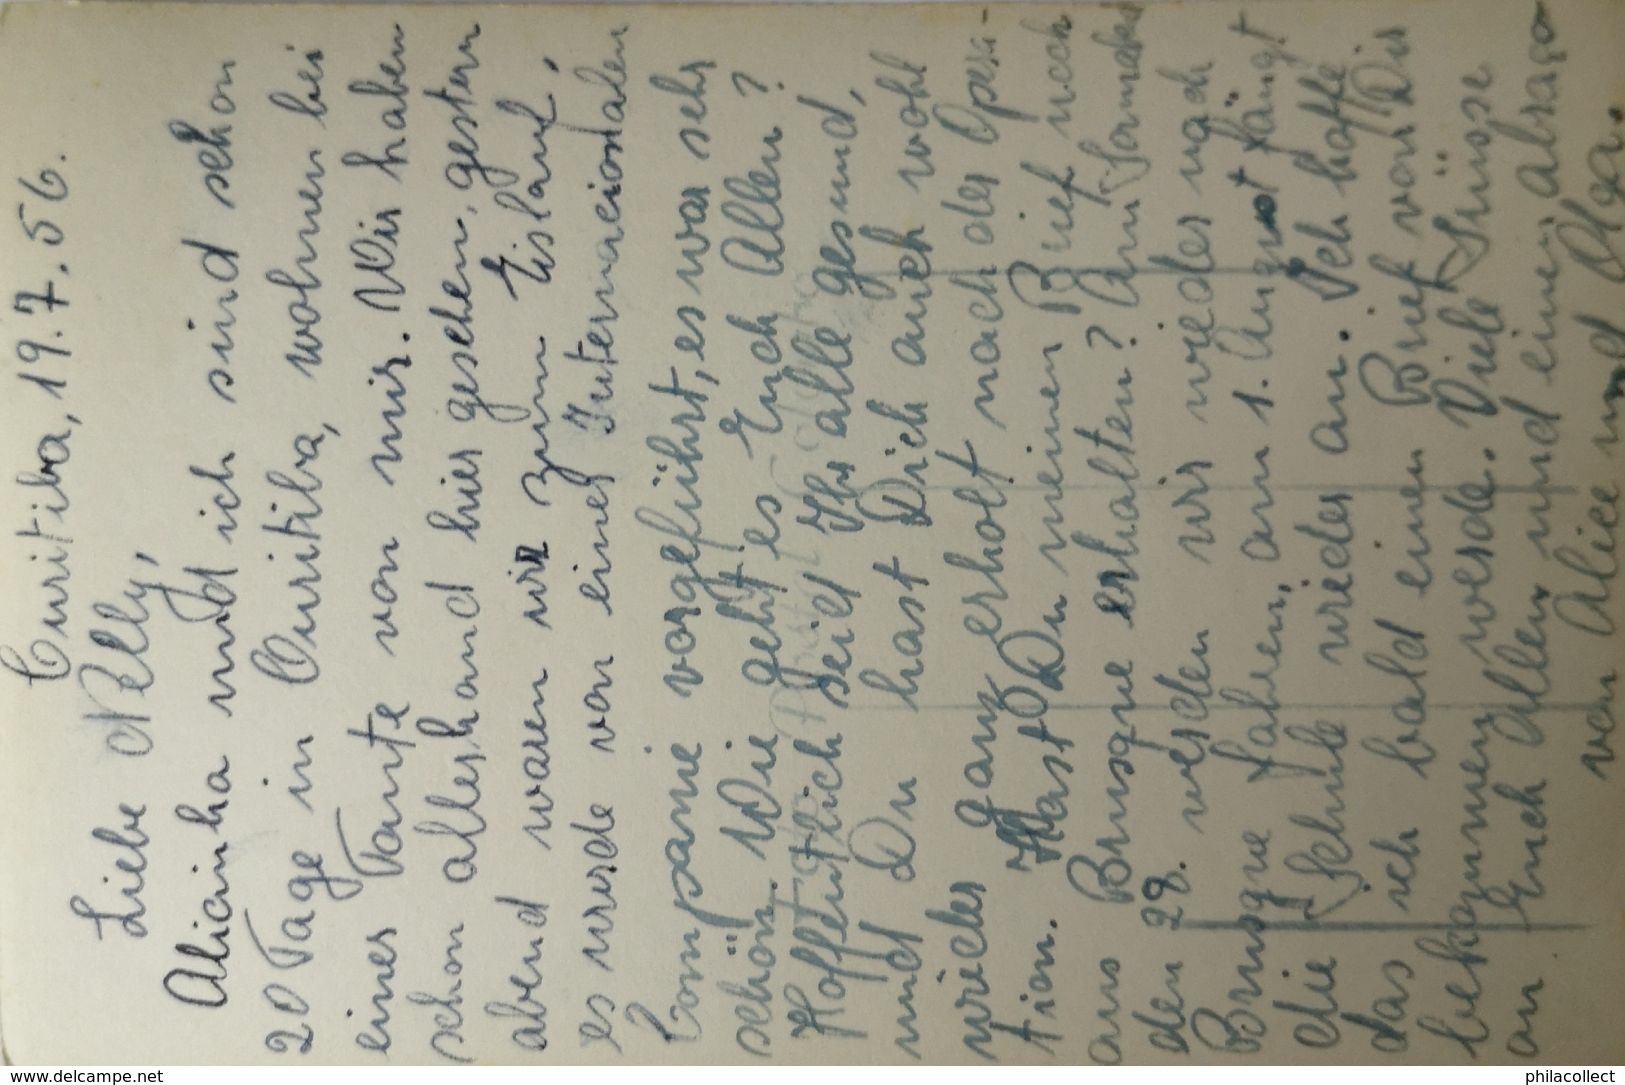 Curitiba, 19.7.56.
Liebe Nelly,
Alicinha und ich sind schon
20 Tage in Curitiba, wohnen bei
einer Tante von mir. Wir haben
schon allerhand hier gesehen, gestern
abend waren wir zum Eislauf,
es wurde von einer Internacionalen
Companie vorgeführt, es war sehr
schön. Wie geht es Euch Allen?
Hoffentlich seid Ihr alle gesund,
und Du hast Dich auch wohl
wieder ganz erholt nach der Opera-
tion. Hast Du meinen Brief noch
aus Brusque erhalten? Am Sonnabend
den 28. werden wir wieder nach
Brusque fahren, am 1. August fängt
die Schule wieder an. Ich hoffe
das ich bald einen Brief von Dir
bekommen werde. Viele Grüsse
an Euch Allen und einen abraço
von Alice und Olga.
www.delcampe.net
philacollect